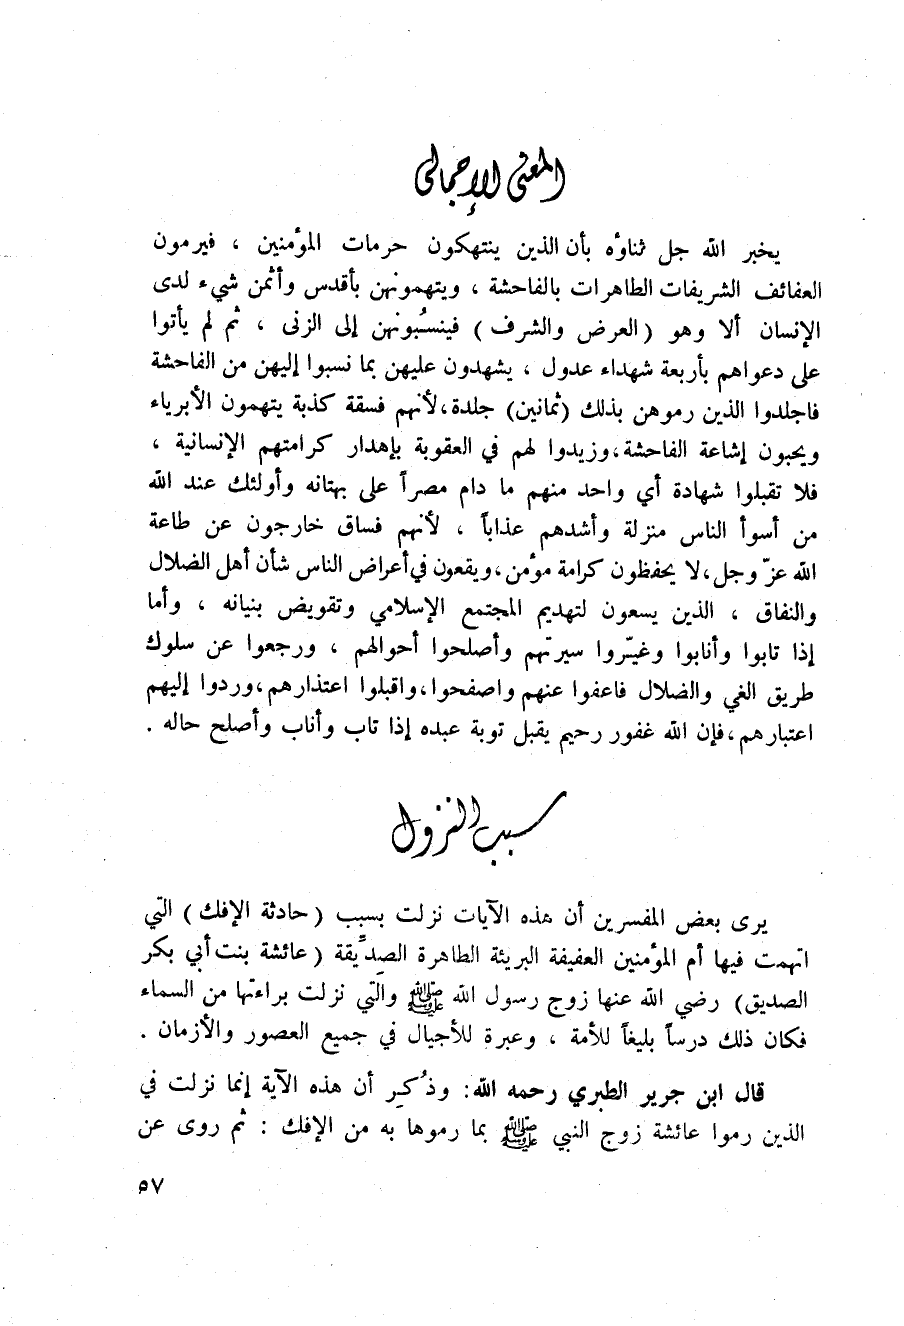 المعنى الإجمالي
يخبر الله جل ثناؤه بأن الذين ينتهكون حرمات المؤمنين ، فيرمون
العفائف الشريفات الطاهرات بالفاحشة ، ويتهمونهن بأقدس وأثمن شيء لدى
الإنسان ألا وهو ( العرض والشرف ) فينسُبونهن إلى الزنى ، ثم لم يأتوا
على دعواهم بأربعة شهداء عدول ، يشهدون عليهن بما نسبوا إليهن من الفاحشة
فاجلدوا الذين رموهن بذلك (ثمانين) جلدة،لأنهم فسقة كذبة يتهمون الأبرياء
ويحبون إشاعة الفاحشة،وزيدوا لهم في العقوبة بإهدار كرامتهم الإنسانية ،
فلا تقبلوا شهادة أي واحد منهم ما دام مصراً على بهتانه وأولئك عند الله
من أسوأ الناس منزلة وأشدهم عذاباً ، لأنهم فساق خارجون عن طاعة
الله عزّ وجل،لا يحفظون كرامة مؤمن،ويقعون في أعراض الناس شأن أهل الضلال
والنفاق ، الذين يسعون لتهديم المجتمع الإسلامي وتقويض بنيانه ، وأما
إذا تابوا وأنابوا وغيّروا سيرتهم وأصلحوا أحوالهم ، ورجعوا عن سلوك
طريق الغي والضلال فاعفوا عنهم واصفحوا،واقبلوا اعتذارهم،وردوا إليهم
اعتبارهم،فإن الله غفور رحيم يقبل توبة عبده إذا تاب وأناب وأصلح حاله .
سبب النزول
يرى بعض المفسرين أن هذه الآيات نزلت بسبب ( حادثة الإفك ) التي
اتهمت فيها أم المؤمنين العفيفة البريئة الطاهرة الصدِّيقة ( عائشة بنت أبي بكر
الصديق) رضي الله عنها زوج رسول الله ﷺ والتي نزلت براءتها من السماء
فكان ذلك درساً بليغاً للأمة ، وعبرة للأجيال في جميع العصور والأزمان .
قال ابن جرير الطبري رحمه الله: وذُكِر أن هذه الآية إنما نزلت في
الذين رموا عائشة زوج النبي ﷺ بما رموها به من الإفك : ثم روى عن
٥٧